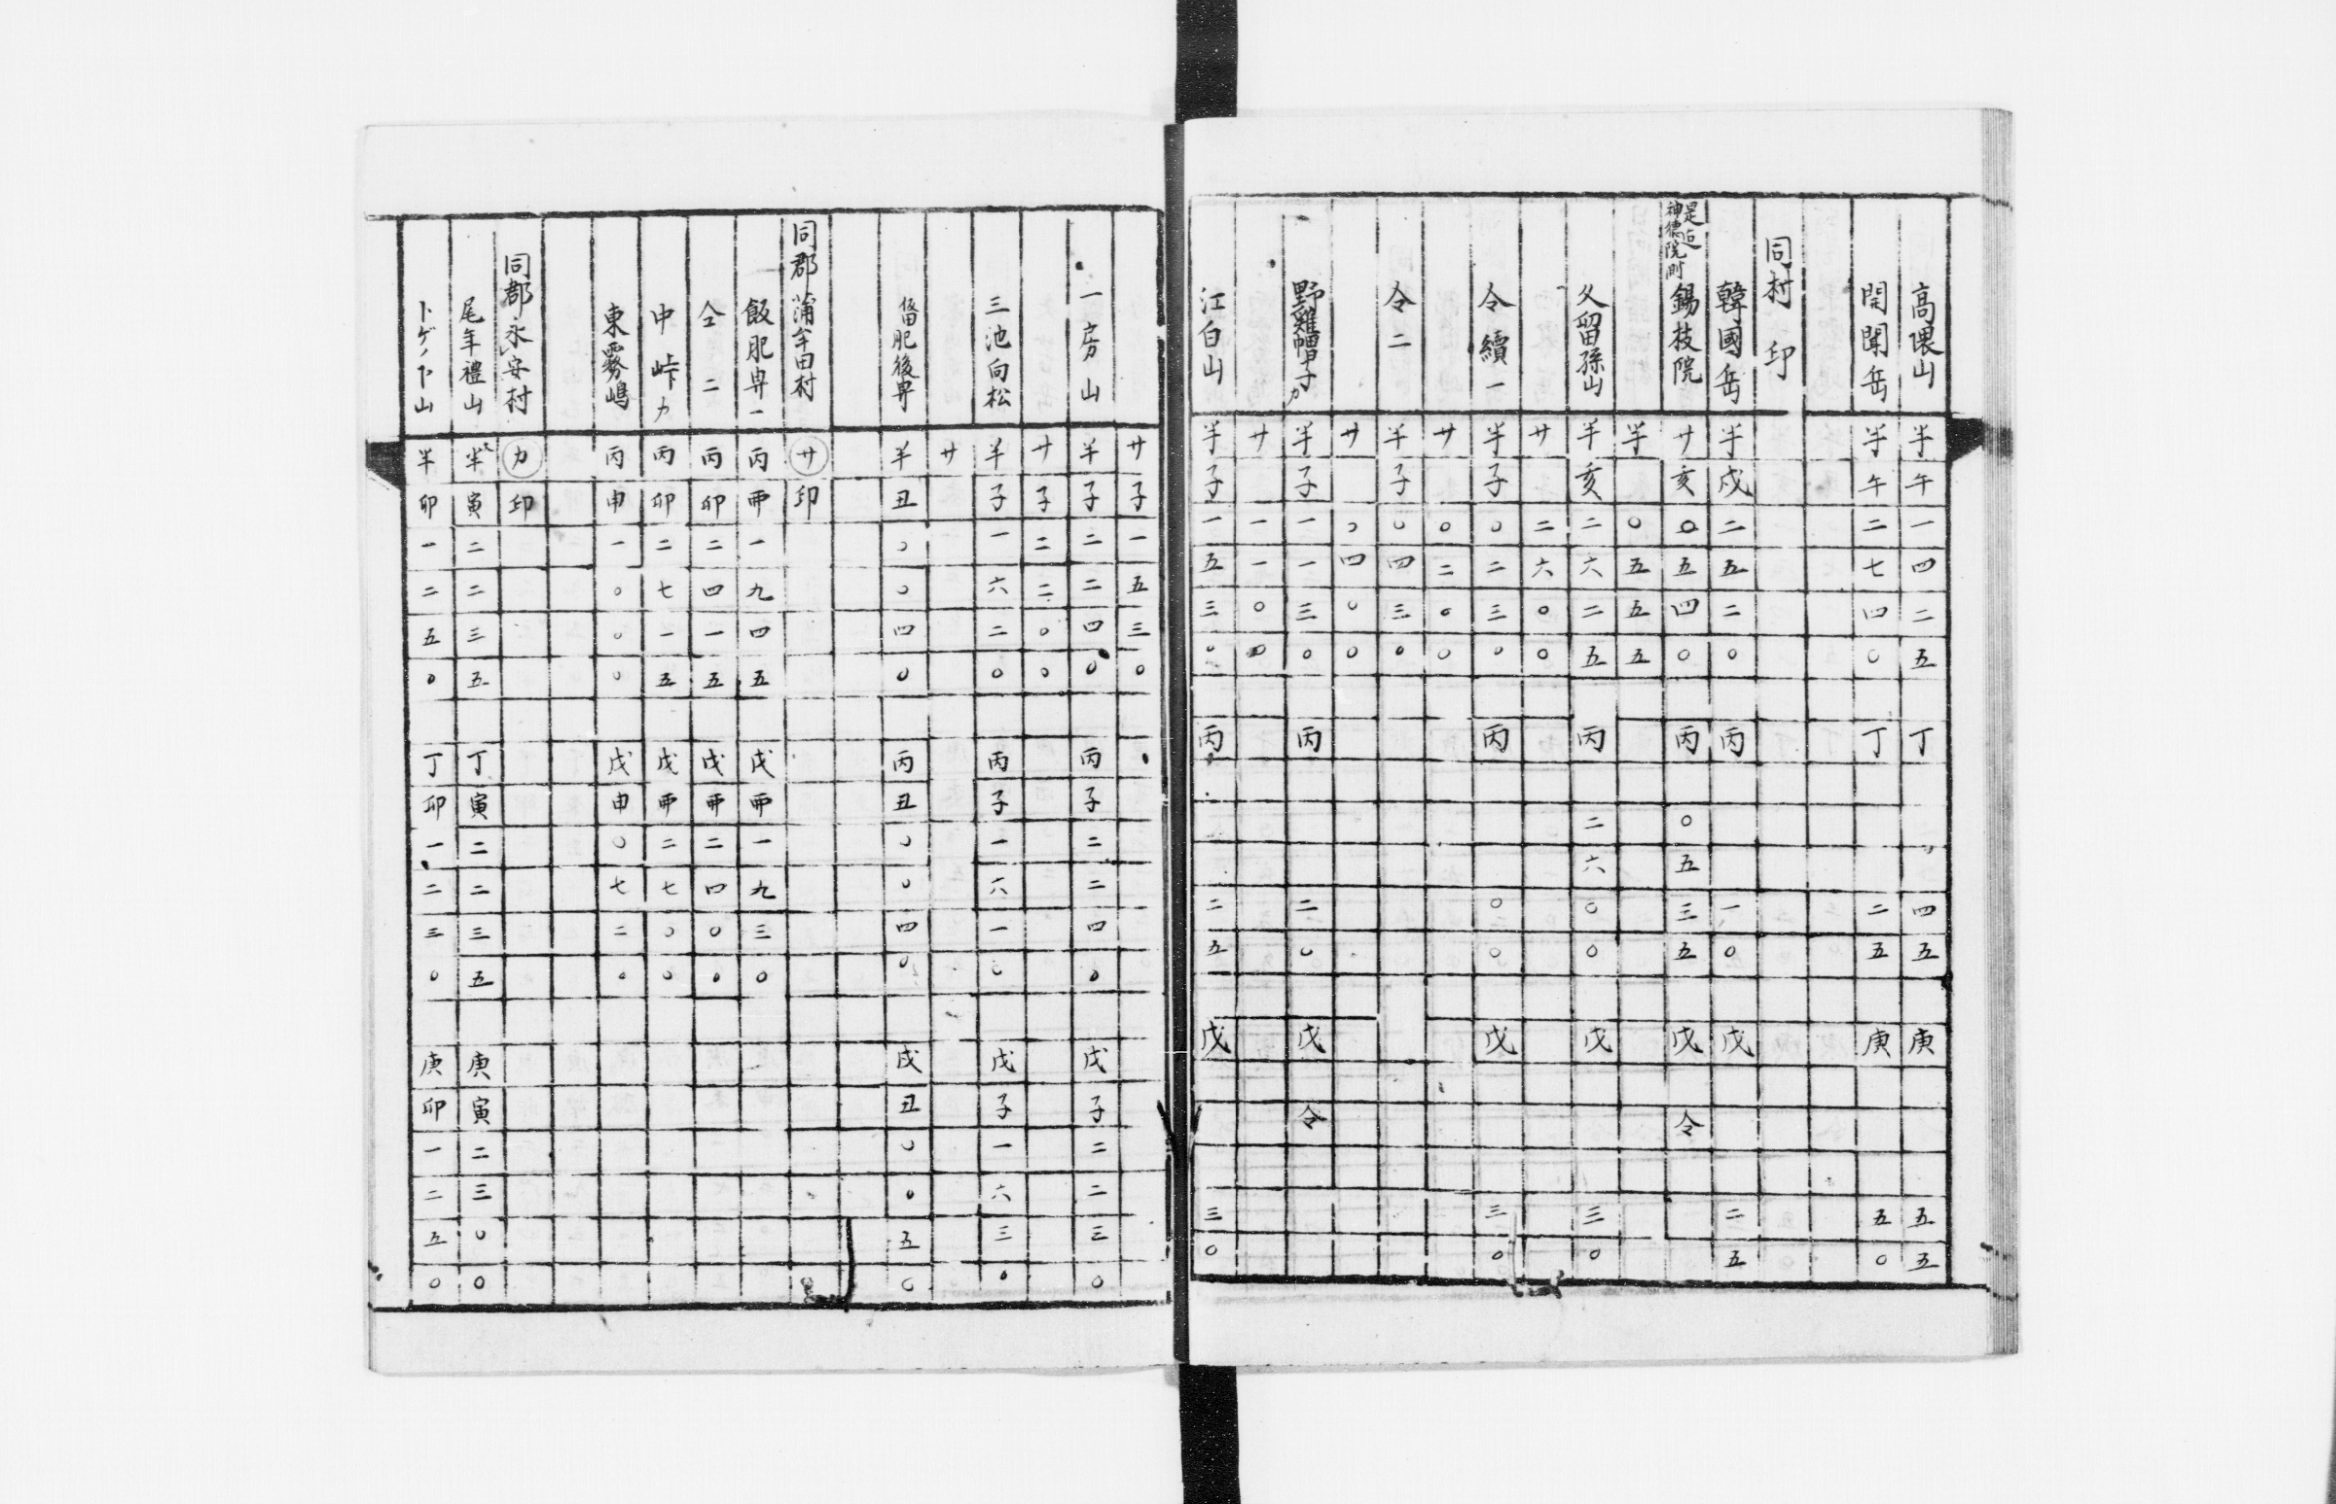 高隈山 半午一四二五 丁 四五 庚 五五
開聞岳 半午二七四〇 丁 二五 庚 五〇
同村 印
韓國岳 半戌二五二〇 丙 一〇 戊 二五
錫杖院 サ亥〇五四〇 丙 〇五三五 戊 仝
半 〇五五五
久留孫山 半亥二六二五 丙 二六〇〇 戊 三〇
サ 二六〇〇
仝續一 半子〇二三〇 丙 〇〇 戊 三〇
サ 〇二〇〇
仝二 半子〇四三〇
サ 〇四〇〇
野雞帽子カ 半子一一三〇 丙 二〇 戊 仝
サ 一一〇〇
江白山 半子一五三〇 丙 二五 戊 三〇
サ子一五三〇
一房山 半子二二四〇 丙子二二四〇 戊子二二三〇
サ子二二〇〇
三池向松 半子一六二〇 丙子一六一〇 戊子一六三〇
サ
肥後界 半丑〇〇四〇 丙丑〇〇四〇 戊丑〇〇五〇
同郡蒲牟田村 サ印
飯肥界一 丙酉一九四五 戊酉一九三〇
仝二 丙卯二四一五 戊酉二四〇〇
中峠カ 丙卯二七一五 戊酉二七〇〇
東霧嶋 丙申一〇〇〇 戊申〇七二〇
同郡永安村 カ印
尾年禮山 半寅二二三五 丁寅二二三五 庚寅二三〇〇
トゲノ下山 半卯一二五〇 丁卯一二三〇 庚卯一二五〇